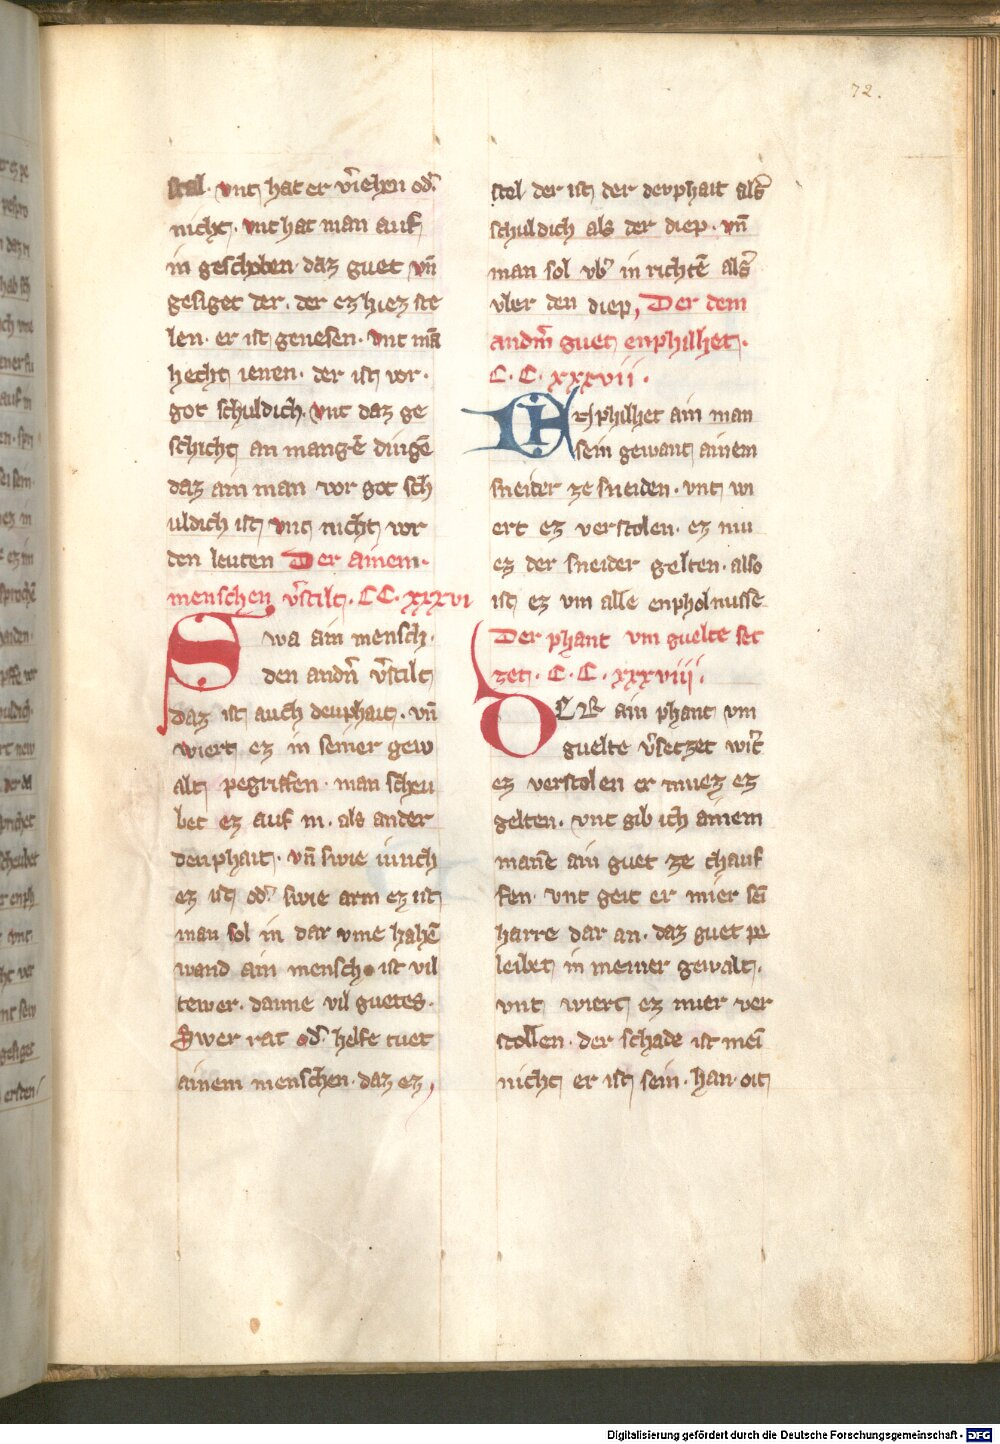 72.
stal. vnt hat er v̓iehen od̓
nicht. vnt hat man auf
in geschoben daz guet vn̄
gesiget der. der ez hiez ste
len. er ist genesen. vnt mā
hecht ienen. der ist vor.
got schuldich. vnt daz ge
schicht an mangē dingē
daz ain man vor got sch
uldich ist vnt nicht vor
den leuten Der ainem.
menschen v̓stilt. CC. xxxvi
Swa ain mensch.
den andn̄ v̓stilt
daz ist auch deuphait. vn̄
wiert ez in seiner gew
alt pegriffen. man scheu
bet ez auf in. als ander
deuphait. vn̄ swie iunch
ez ist od̓ swie arm ez ist
man sol in dar vme hahē
wand ain mensch ist vil
tewer. danne vil guetes.
Swer rat od̓ helfe tuet
ainem menschen. daz ez
stel. der ist der deuphait als̄
schuldich als der diep. vn̄
man sol vb̓ in richtē als̄
vber den diep, Der dem
andm̄ guet enphilhet.
C. C. xxxvii.
Enphilhet ain man
sein gewant ainem
sneider ze sneiden. vnt wi
ert ez verstolen. ez mu
ez der sneider gelten. also
ist ez vm alle enpholnusse
Der phant vm guelte sec
zet. C. C. xxxviii.
SWER ain phant vm
guelte v̓seczet wirt
ez verstolen er muez ez
gelten. vnt gib ich ainem
manne ain guet ze chauf
fen. vnt geit er mier sei
harre dar an. daz guet pe
leibet in meiner gewalt.
vnt wiert ez mier ver
stollen. der schade ist mei
nicht er ist sein. han. oit
Digitalisierung gefördert durch die Deutsche Forschungsgemeinschaft - DFG